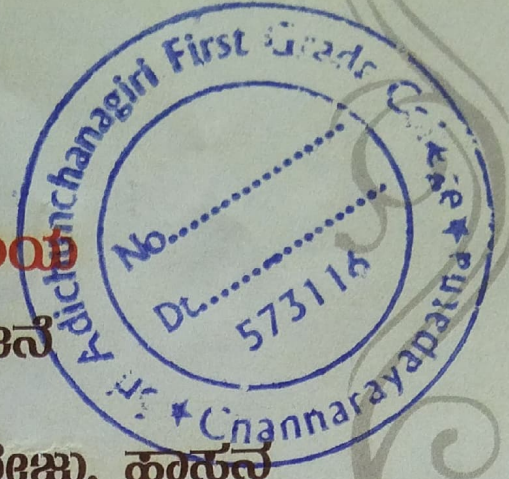 Sri Adichunchanagiri First Grade College ★ Channarayapatna ★
No..................
Dt..................
573116
ಯ
ನೆ
ಹಾಸನ